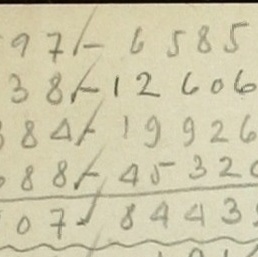 97/- 6585
38/- 12606
84/- 19926
88/- 4532
07/- 8443